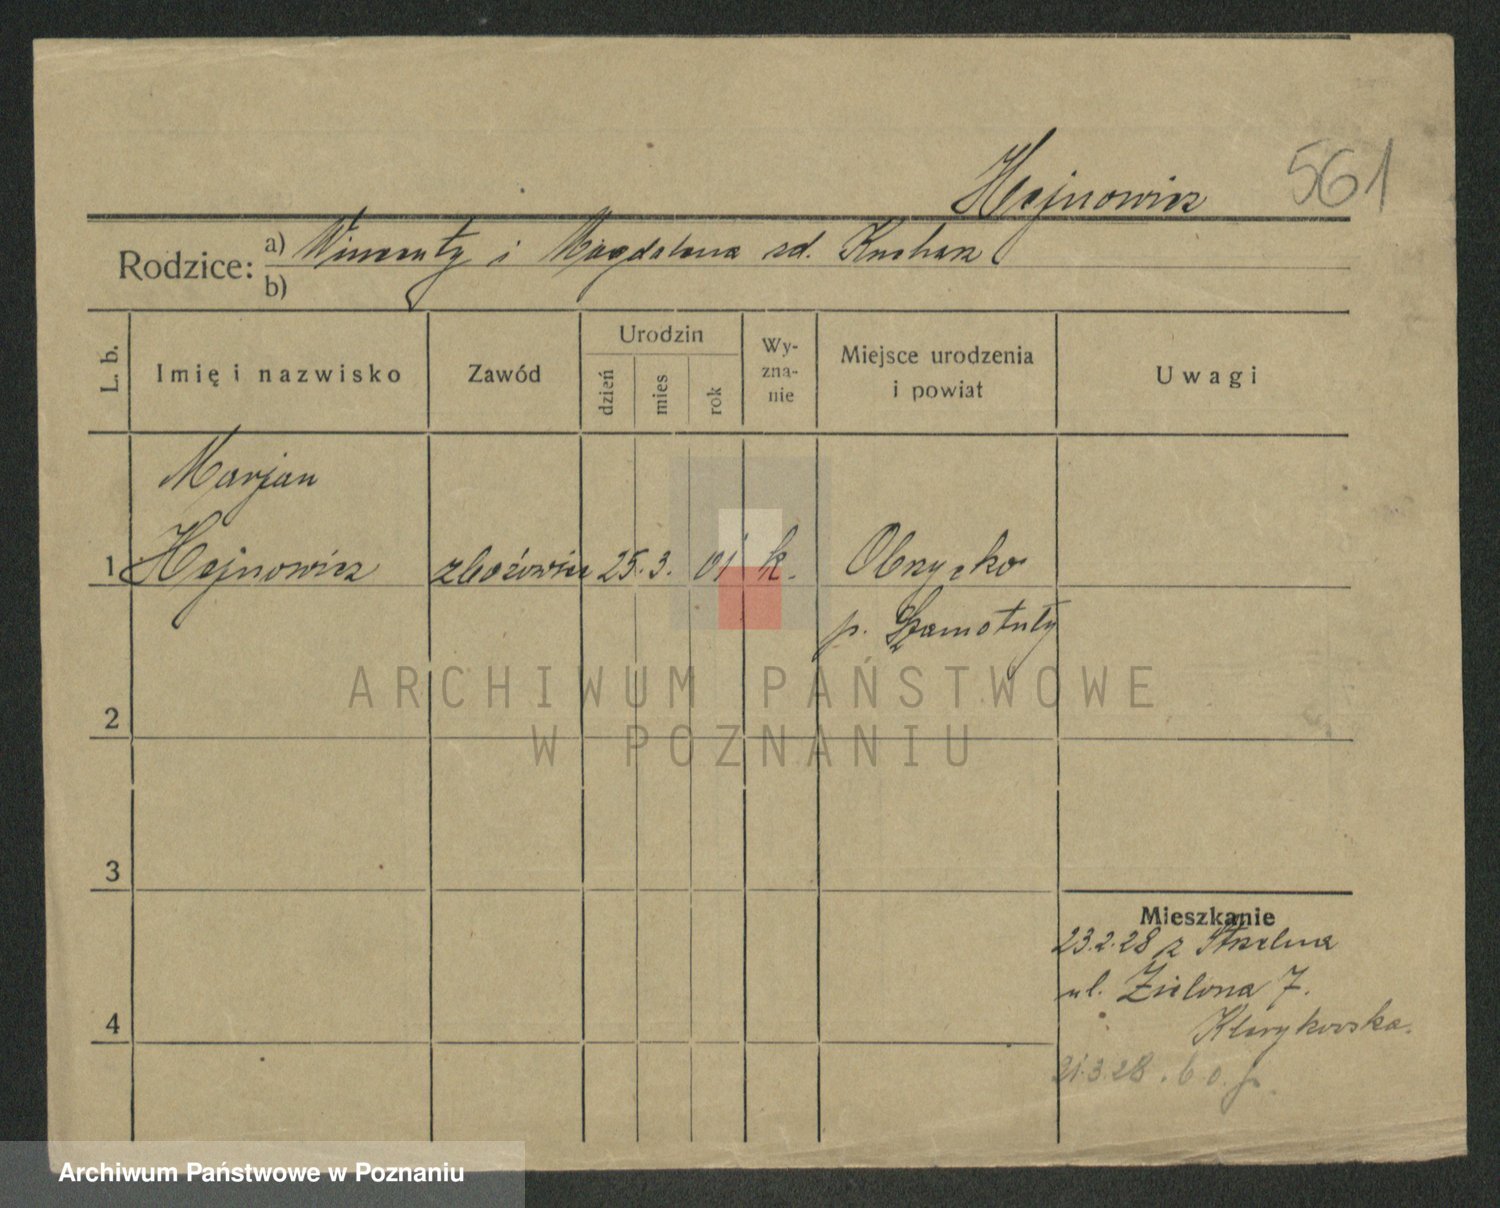 561
Hejnowicz
Rodzice: a) Wincenty i Magdalena zd. Kucharz
b)
L. b.
Imię i nazwisko
Zawód
Urodzin
dzień
mies
rok
Wy-
zna-
nie
Miejsce urodzenia
i powiat
Uwagi
Marjan
1 Hejnowicz zbożowiec 25. 3. 01 k. Obrzycko
p. Szamotuły
ARCHIWUM PAŃSTWOWE
W POZNANIU
2
3
Mieszkanie
23.2.28 z Strzelna
ul. Zielona 7.
4
21.3.28. b.o.p.
Archiwum Państwowe w Poznaniu